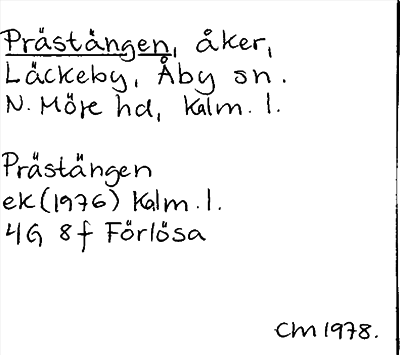 Prästängen, åker,
Läckeby, Åby sn.
N. Möre hd, Kalm. l.
Prästängen
ek (1976) Kalm. l.
4G 8f Förlösa
CM 1978.